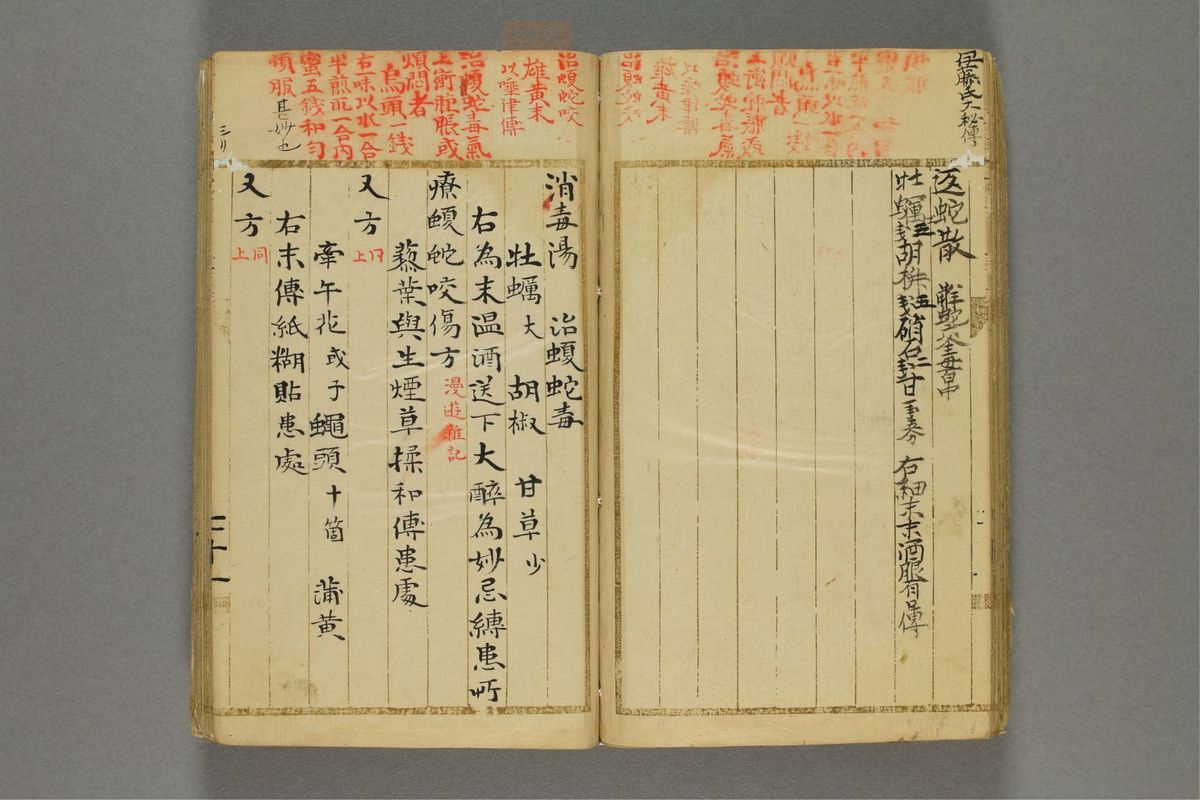 伊藤氏大秘傳
返蛇散
右細末酒服
治蝮蛇咬
雄黄末
以唾津傳
治蝮蛇毒氣
上衝腫脹或
煩悶者
烏頭一錢
右一味以水一合
半煎取一合内
蜜五錢和勻
頓服甚妙也
消毒湯 治蝮蛇毒
牡蠣大 胡椒 甘草少
右為末温酒送下大醉為妙忌縛患所
療蝮蛇咬傷方 漫遊雜記
蓼葉與生煙草揉和傳患處
又方 同上
牽午花或子 蠅頭十箇 蒲黄
右末傳紙糊貼患處
又方 同上
二十一